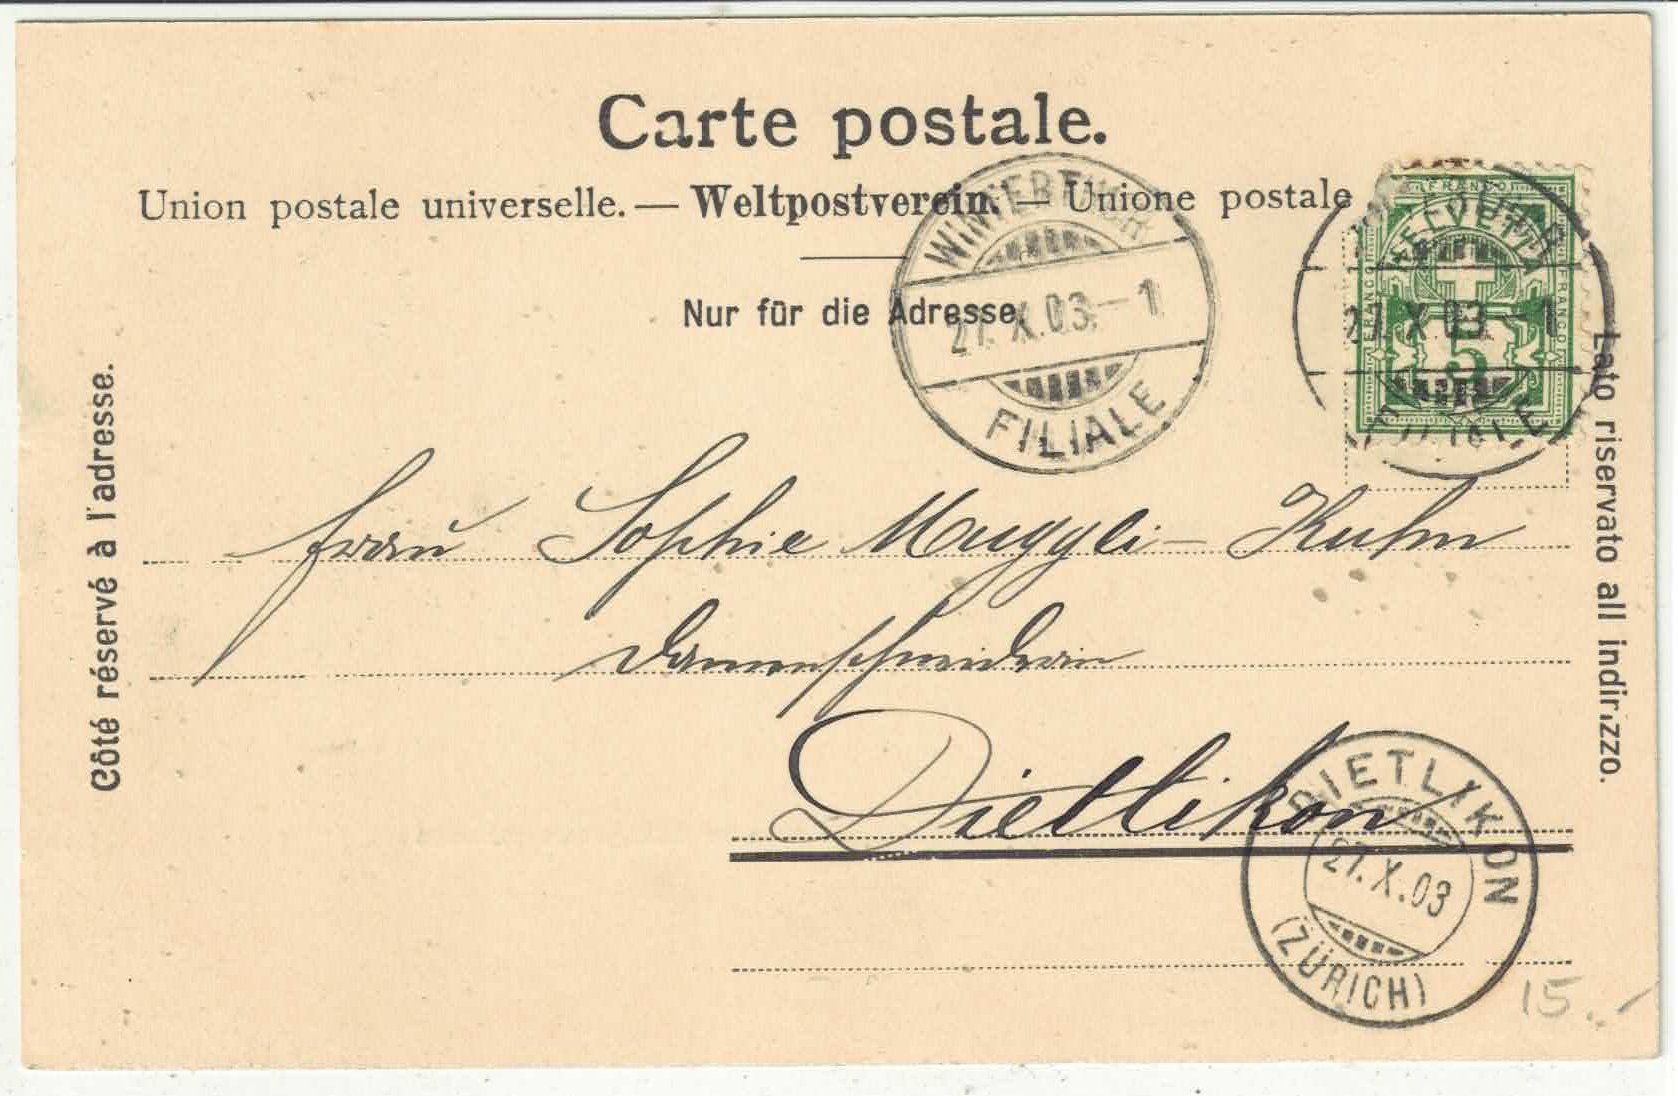 Carte postale.
Union postale universelle. — Weltpostverein. — Unione postale
Nur für die Adresse.
Côté réservé à l'adresse.
Lato riservato all indirizzo.
WINTERTHUR
27. X. 03. – 1
FILIALE
WINTERTHUR
27. X. 03. – 1
FILIALE
FRANCO
HELVETIA
FRANCO
FRANCO
5
Frau Sophie Muggli - Kuhn
Damenschneiderin
Dietlikon
DIETLIKON
27. X. 03
(ZÜRICH)
15..